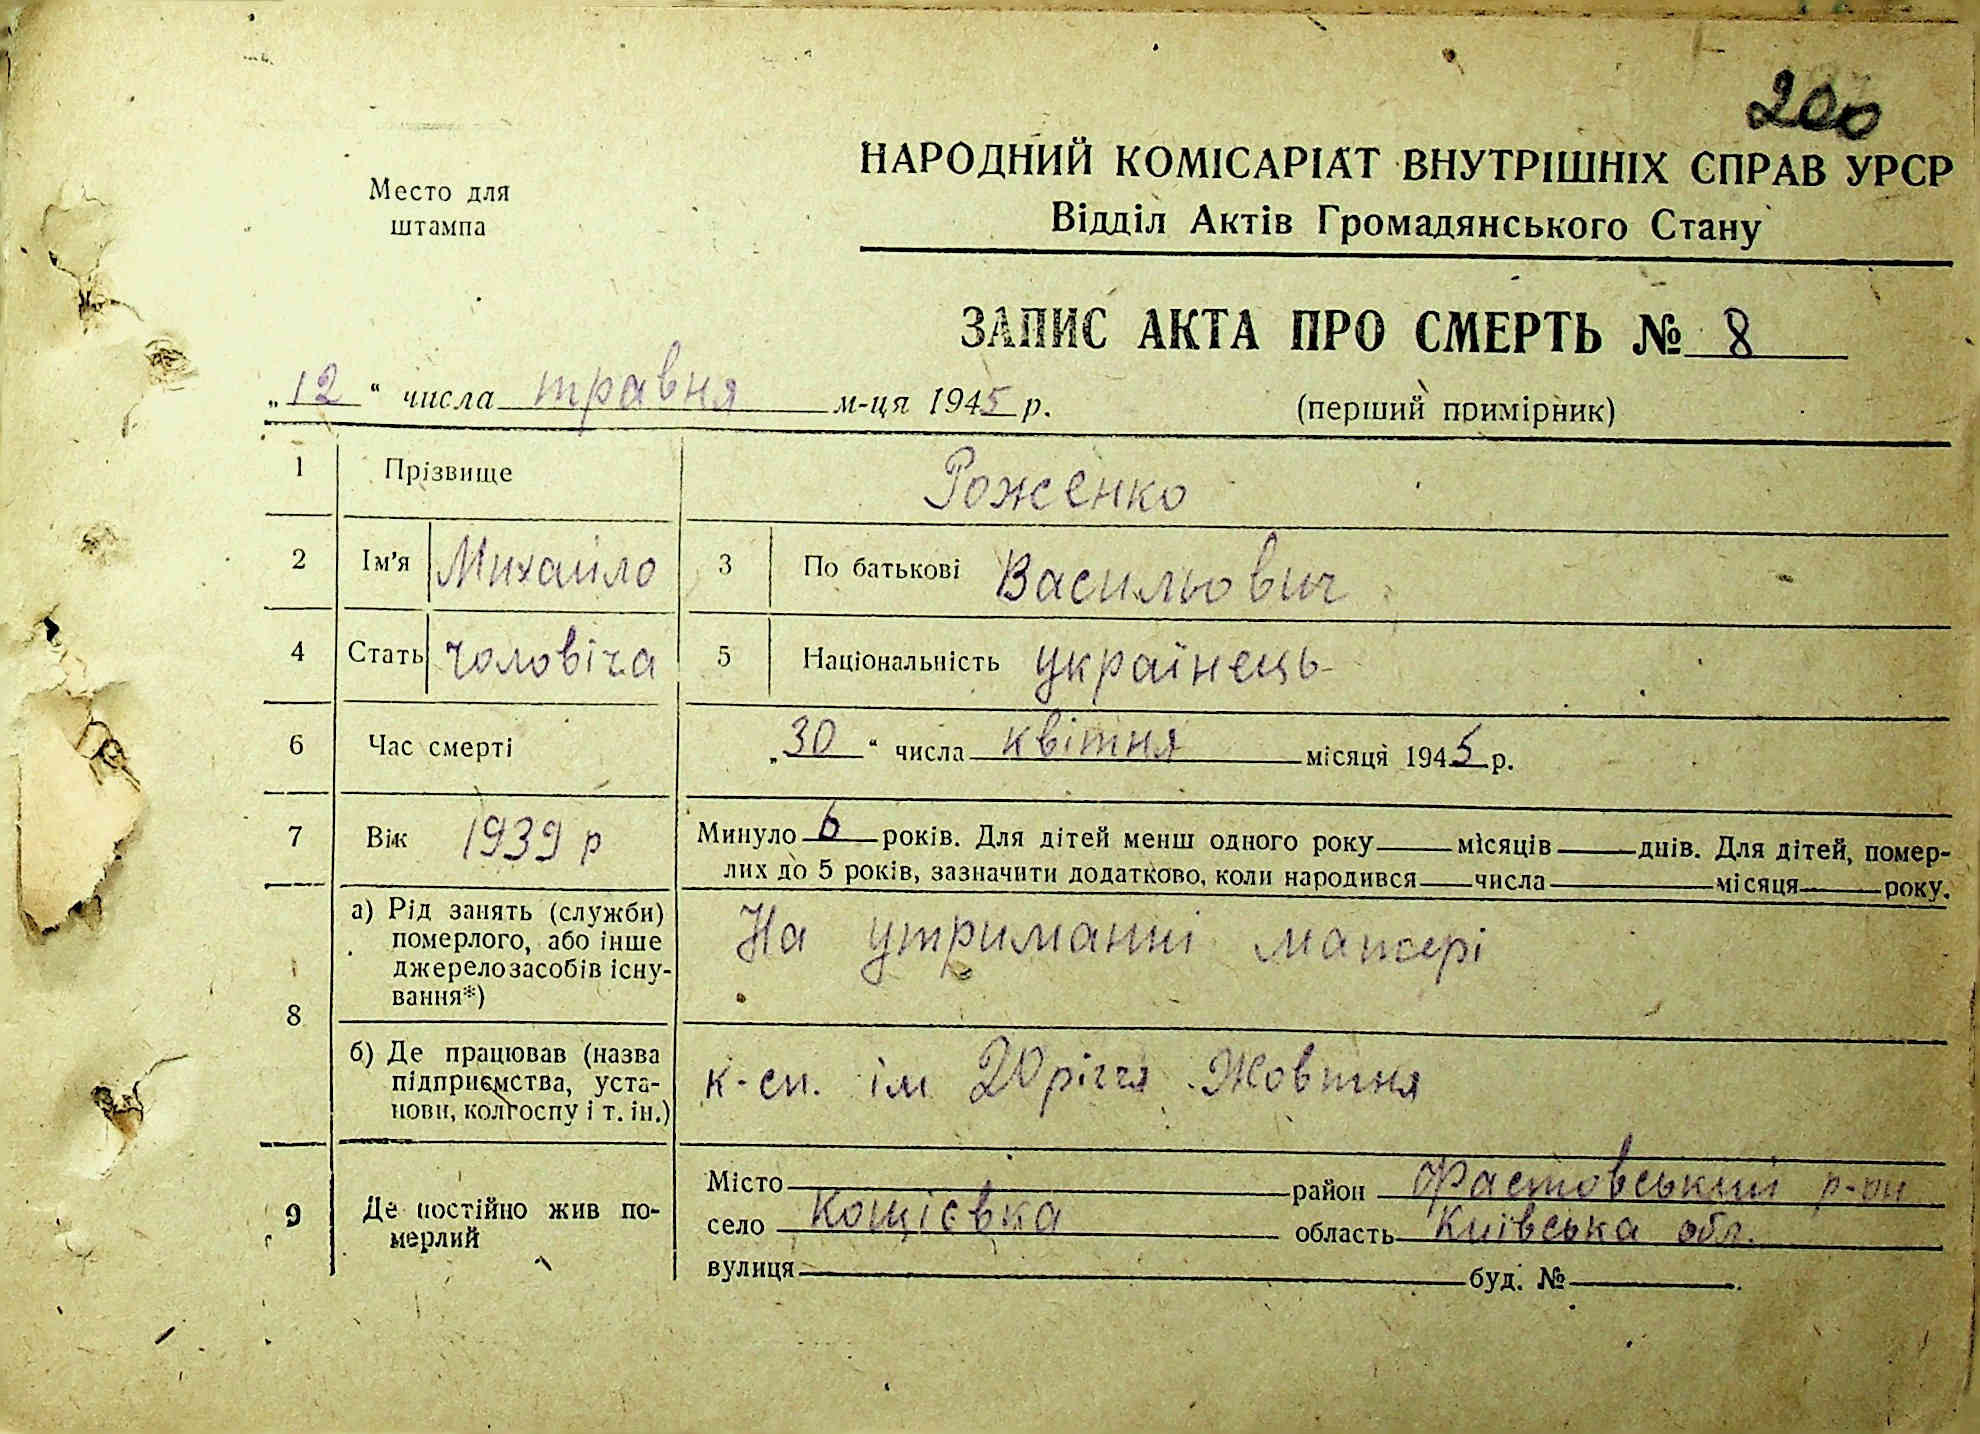 200
Место для
штампа
НАРОДНИЙ КОМІСАРІАТ ВНУТРІШНІХ СПРАВ УРСР
Відділ Актів Громадянського Стану
ЗАПИС АКТА ПРО СМЕРТЬ № 8
„12“ числа травня м-ця 1945 р.
(перший примірник)
1 Прізвище Роженко
2 Ім'я Михайло 3 По батькові Васильович
4 Стать чоловіча 5 Національність українець
6 Час смерті „30“ числа квітня місяця 1945 р.
7 Вік 1939 р Минуло 6 років. Для дітей менш одного року місяців днів. Для дітей, помер-
лих до 5 років, зазначити додатково, коли народився числа місяця року.
8
а) Рід занять (служби)
померлого, або інше
джерело засобів існу-
вання*)
На утриманні матері
б) Де працював (назва
підприємства, уста-
нови, колгоспу і т. ін.)
к-сп. ім 20 річчя Жовтня
9 Де постійно жив по-
мерлий
Місто район Фастовський р-он
село Кощієвка область Київська обл.
вулиця буд. №